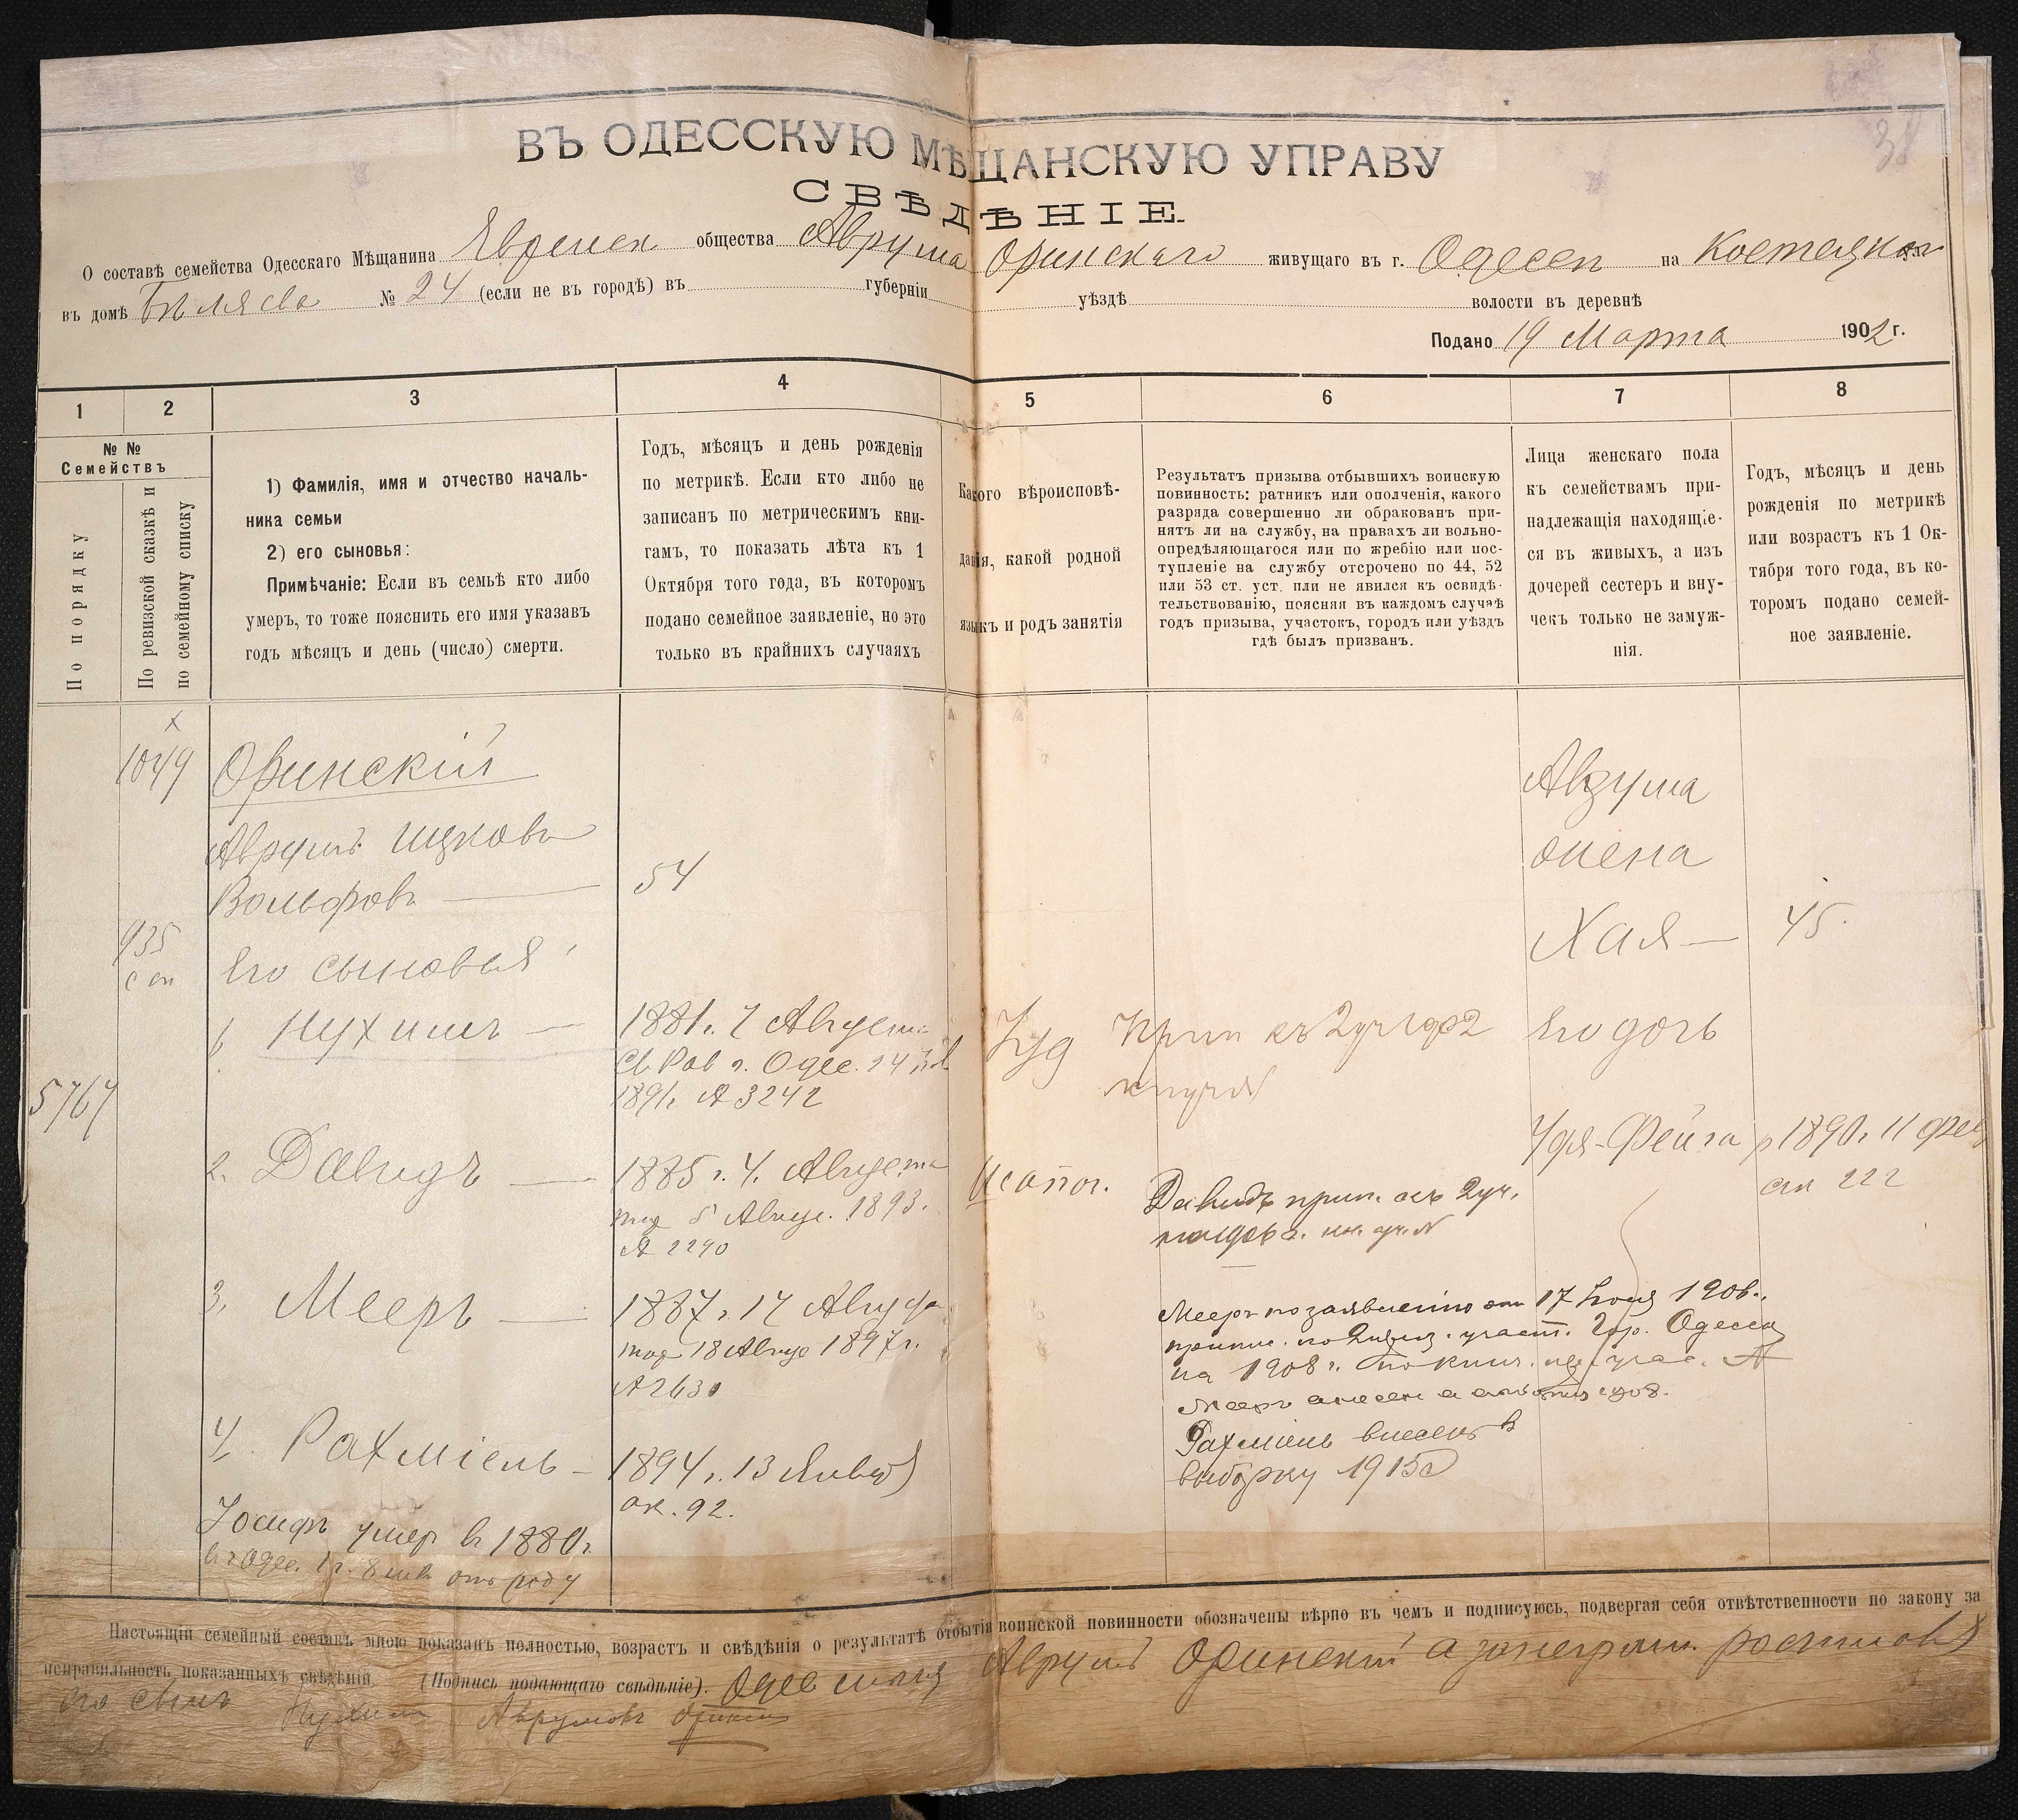 ВЪ ОДЕССКУЮ МѢЩАНСКУЮ УПРАВУ
СВѢДѢНІЕ
О составѣ семейства Одесскаго Мѣщанина Евреиск общества Аврума живущаго въ г. Одессѣ на
въ домѣ Бѣляева № 24 (если не въ городѣ) въ губерніи уѣздѣ волости въ деревнѣ
Подано 19 Марта 1902 г.
1 2 3 4 5 6 7 8
№ № Семействъ
По порядку
По ревизской сказкѣ и по семейному списку
1) Фамилія, имя и отчество началь-
ника семьи
2) его сыновья:
Примѣчаніе: Если въ семьѣ кто либо
умеръ, то тоже пояснить его имя указавъ
годъ мѣсяцъ и день (число) смерти.
Годъ, мѣсяцъ и день рожденія
по метрикѣ. Если кто либо не
записанъ по метрическимъ кни-
гамъ, то показать лѣта къ 1
Октября того года, въ которомъ
подано семейное заявленіе, но это
только въ крайнихъ случаяхъ
Какого вѣроисповѣ-
данія, какой родной
языкъ и родъ занятія
Результатъ призыва отбывшихъ воинскую
повинность: ратникъ или ополченія, какого
разряда совершенно ли обракованъ при-
нятъ ли на службу, на правахъ ли вольно-
опредѣляющагося или по жребію или пос-
тупленіе на службу отсрочено по 44, 52
или 53 ст. уст. или не явился къ освидѣ-
тельствованію, поясняя въ каждомъ случаѣ
годъ призыва, участокъ, городъ или уѣздъ
гдѣ былъ призванъ.
Лица женскаго пола
къ семействамъ при-
надлежащія находящіе-
ся въ живыхъ, а изъ
дочерей сестеръ и вну-
чекъ только не замуж-
нія.
Годъ, мѣсяцъ и день
рожденія по метрикѣ
или возрастъ къ 1 Ок-
тября того года, въ ко-
торомъ подано семей-
ное заявленіе.
х
1049
Аврумъ Ицковъ
Вольфовъ 54
935
Его сыновья:
1. Нухимъ 1881 г. 7 Августа
1891 г. № 3242
5767
2. Давидъ 1885 г. 4 Августа
5 Авгус. 1893.
№ 2290
3. Мееръ 1887 г. 17 Августа
18 Авгус 1897 г.
№ 2630
4. Рахміель 1894 г. 13 Января
ак. 92.
Іосифъ умер въ 1880 г.
в г Одес. 1 г. 8 отъ роду
Іуд
Давидъ прип. къ 2 уч.
Мееръ по заявленію от 17 Іюля 190
участ. Гор. Одессы
на 1908 г.
Рахміель внесенъ в
выборку 1915 г
Аврума
жена
Хая 45.
Его дочь
Удя-Фейга р 1890 г. 11 фев
ак 222
Настоящій семейный составъ мною показанъ полностью, возрастъ и свѣдѣнія о результатѣ отбытія воинской повинности обозначены вѣрно въ чемъ и подписуюсь, подвергая себя отвѣтственности по закону за
неправильность показанныхъ свѣдѣній. (Подпись подающаго свѣдѣніе). Одес мѣщ Аврумъ а за неграм. росписался
его сынъ Нухим Аврумовъ